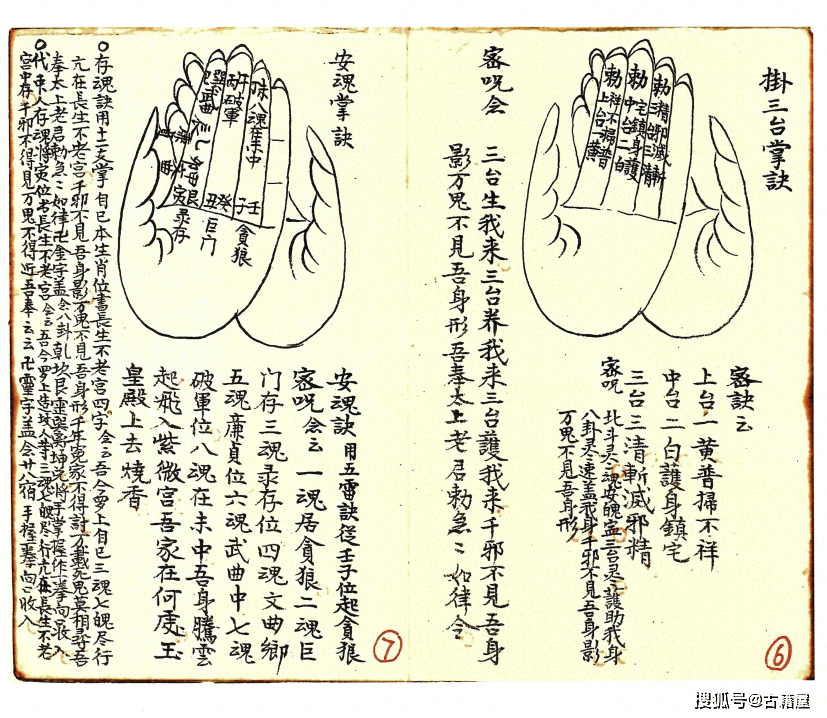 掛三台掌訣
勅三清斬
三台滅邪精
勅中台二白
護身鎮宅
勅上台一黄普
掃不祥
密訣云
上台一黄普掃不祥
中台二白護身鎮宅
三台三清斬滅邪精
密咒
北斗灵灵魂安魄定三台灵灵護助我身
八卦灵速盖我身千邪不見吾身影
万鬼不見吾身形
密咒会
三台生我来三台养我来三台護我来千邪不見吾身
影万鬼不見吾身形吾奉太上老君勅急二如律令
6
安魂掌訣
未八魂在未中
午
丙破軍
巽武
艮
寅
丑
癸
子
壬
录存
巨门
貪狼
安魂訣用五雷訣從壬子位起貪狼
密咒会云一魂居貪狼二魂巨
门存三魂录存位四魂文曲鄉
五魂廉貞位六魂武曲中七魂
破軍位八魂在未中吾身騰雲
起飛入紫微宫吾家在何處玉
皇殿上去燒香
存魂訣用十二支掌自已本生肖位書長生不老宫四字会云吾今罗上自已三魂七魄尽行
亢在長生不老宫千邪不見吾身影万鬼不見吾身形千年冤家不得討万載死鬼莫相尋吾
奉太上老君勅急二如律卍金字盖会八卦乾坎艮震巽離坤兑将手掌握作一拳向口收入
代中人存魂将寅位書長生不老宫会云吾今罗上
三魂七魄尽行亢在長生不老
宫中存千邪不得見万鬼不得近吾奉云云卍靈字盖会廿八宿手握拳向口收入
7
搜狐号@古籍屋